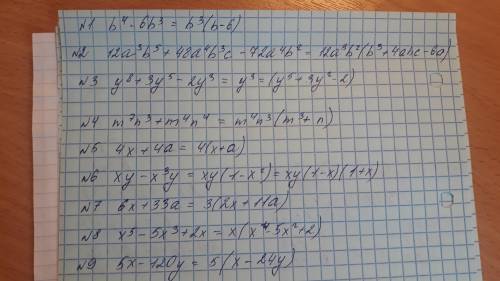 №1 b⁴ - 6b³ = b³(b-6)
№2 12a³b⁵ + 48a⁴b³c - 72a⁴b² = 12a³b²(b³+4abc-6a)
№3 y⁸ + 3y⁵ - 2y³ = y³ = (y⁵ + 3y² - 2)
№4 m⁷n³ + m⁴n⁴ = m⁴n³(m³+n)
№5 4x + 4a = 4(x+a)
№6 xy - x³y = xy(1-x²) = xy(1-x)(1+x)
№7 6x + 33a = 3(2x + 11a)
№8 x⁵ - 5x³ + 2x = x(x⁴ - 5x² + 2)
№9 5x - 120y = 5(x - 24y)